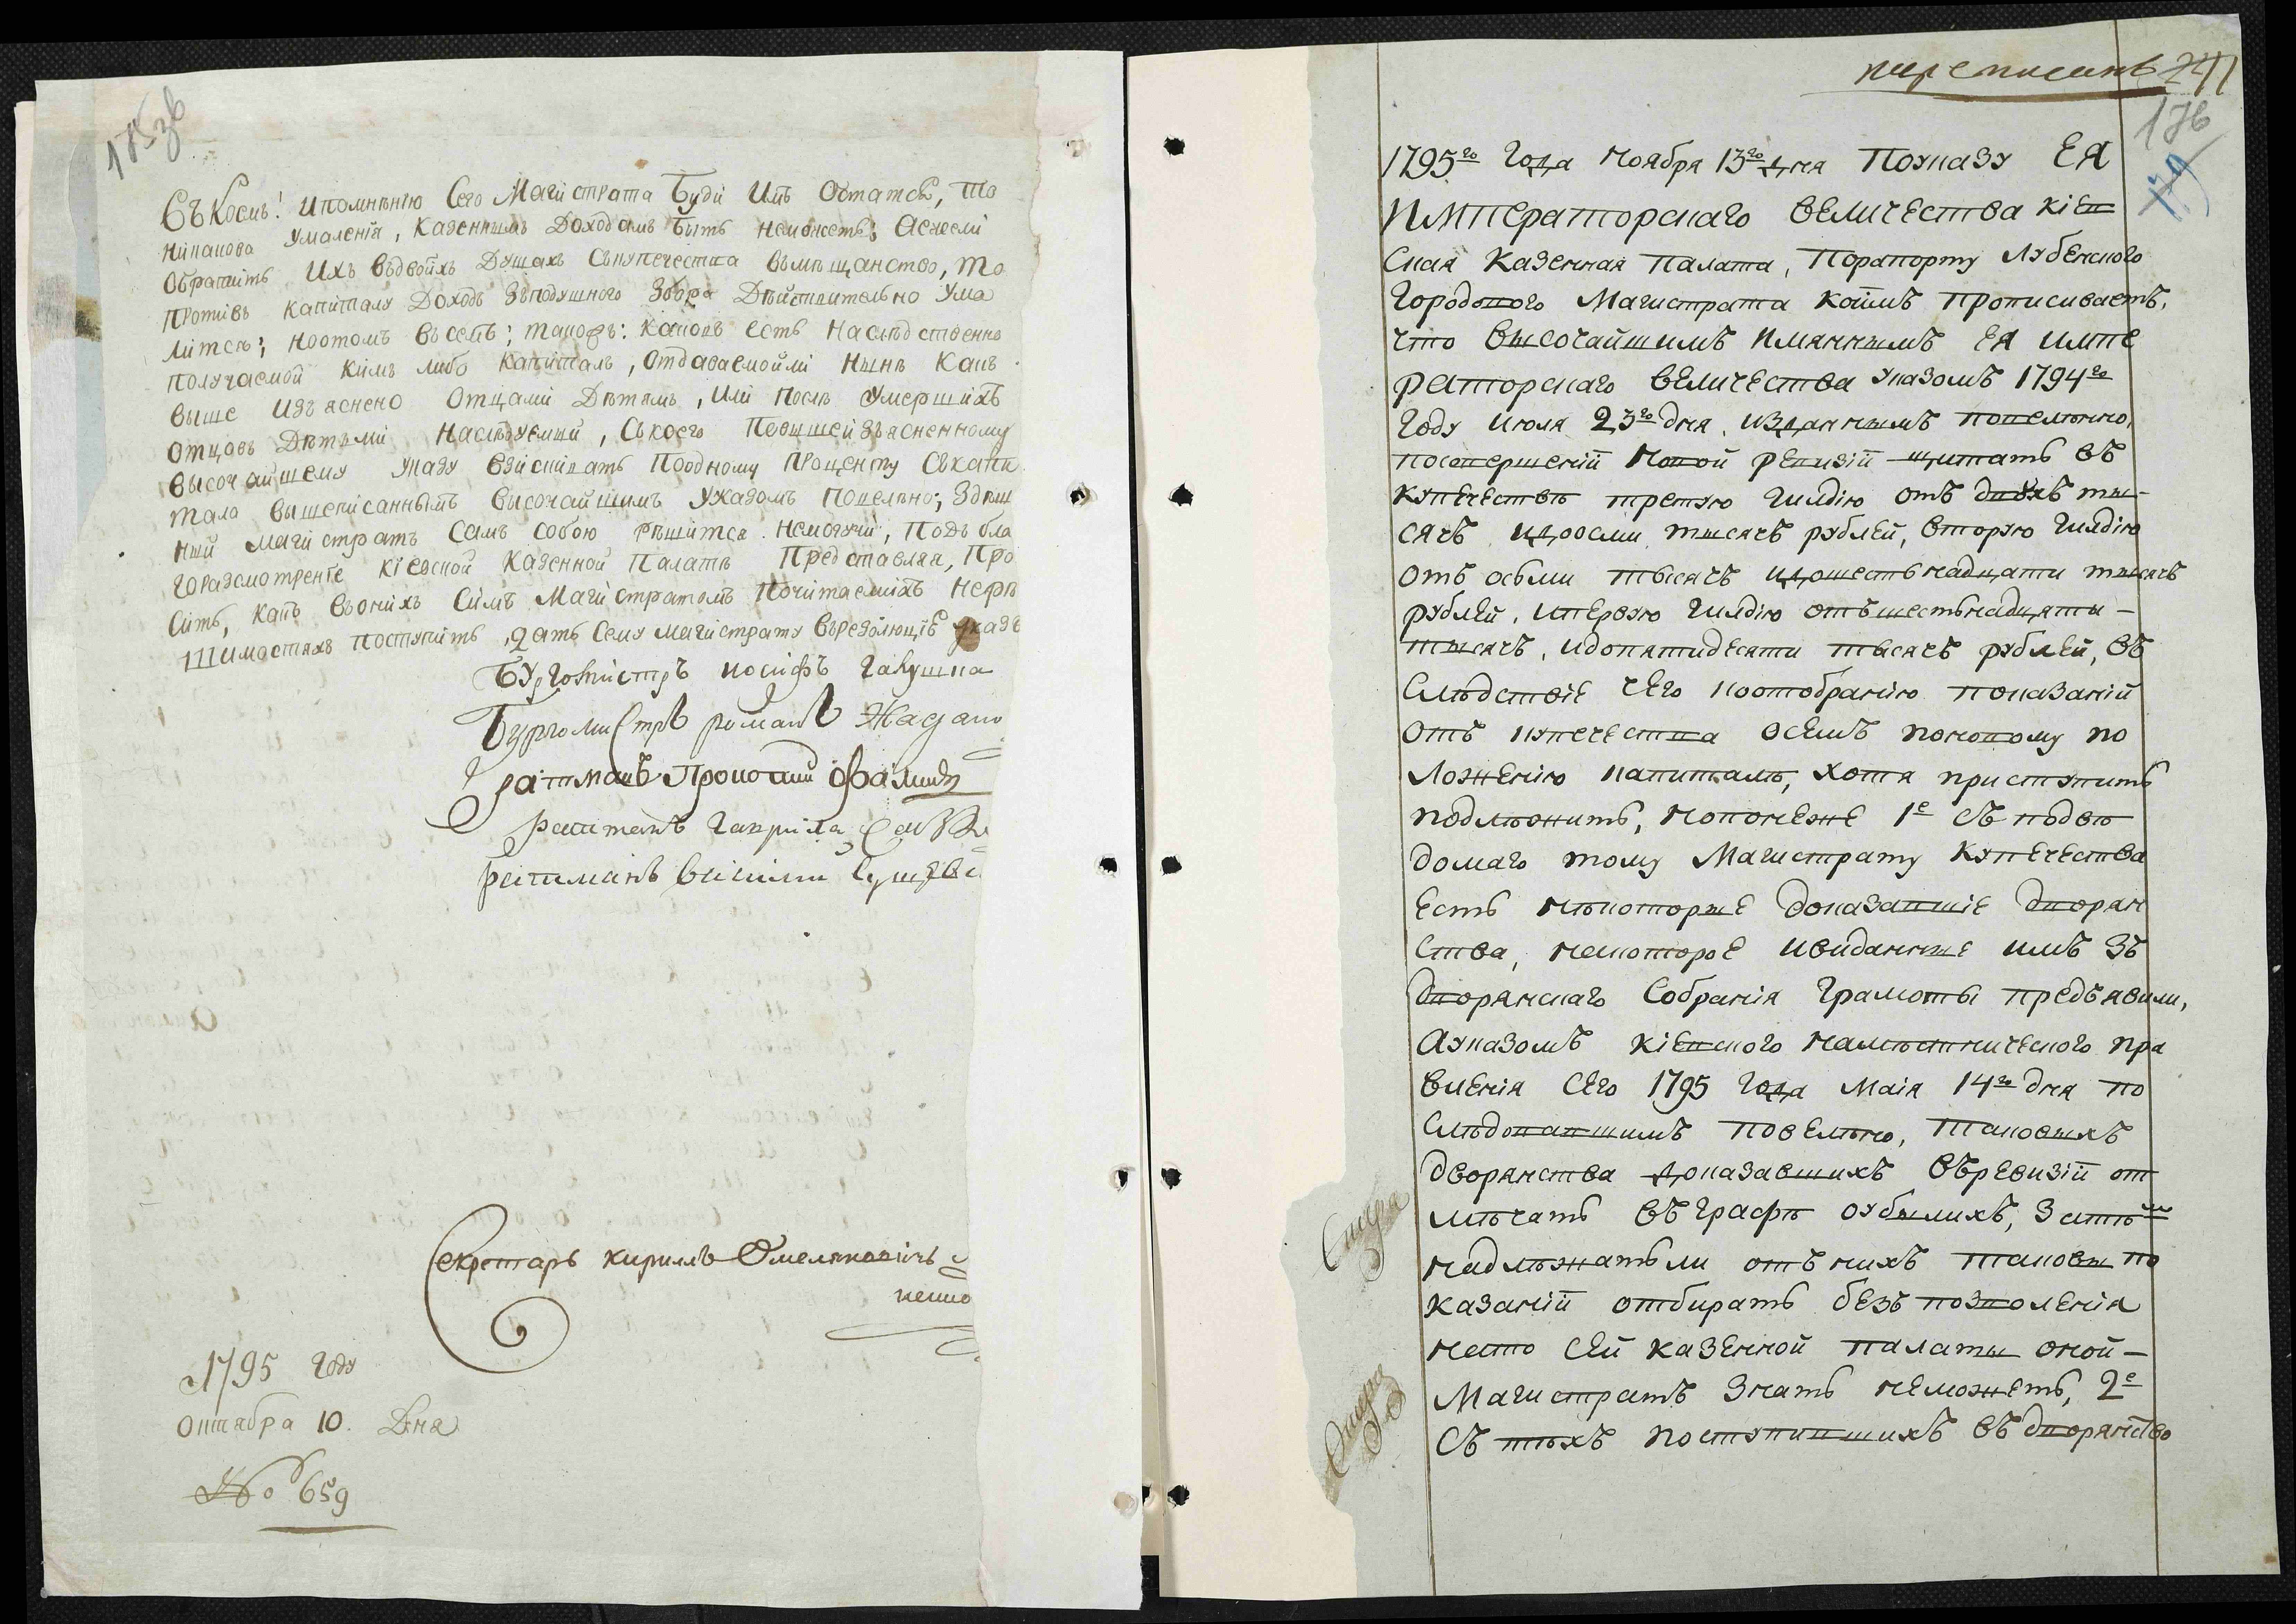 175зв
Съ коемъ: ипомнѣнію Сего Магистрата Буди Имъ Остатсѣ, то
никакова умаленія, Казеннымъ Доходамъ Быть неможетъ; Аежели
Обратить Ихъ въдвойхъ Душахъ Съкупечества въмѣщанство, то
противъ Капиталу Доходъ Зъподушного Збора Дѣйствительно Ума
литсь; ноотомъ въсемъ; такожъ: каковъ есть Наслѣдственно
получаемой кимъ либо Капиталъ, отдаваемойли Нынѣ Какъ
выше Изъяснено Отцами Дѣтямъ, Или послѣ Умершихъ
отцовъ Дѣтьми Наслѣдуемый, Съкоего Повышеизъясненному
высочайшему Указу взискивать Поодному Проценту Съкапи
тала вышеписаннымъ высочайшимъ Указомъ повелѣно; Здѣш
ный магистратъ Самъ Собою рѣшитса Немогучи, Подъ бла
горазсмотреніе Кіевской Казенной Палатѣ Представляя, Про
сить, какъ въонихъ Симъ Магистратомъ Почитаемихъ Нерѣ
шимостяхъ поступить, дать Сему магистрату върезолюціѣ указъ
Бургомистръ иосифъ гакушка
Бургомистръ романъ
ратманъ Прокопий
ратманъ гаврила
ратманъ
Секретарь Кириллъ Омеляновичъ
1795 году
октября 10. Дня
№ 659
176
179
1795го года Ноября 13го дня Поуказу ЕЯ
Императорскаго величества Кіев
ская Казенная палата, Порапорту Лубенского
городового Магистрата коимъ прописиваетъ,
что высочайшимъ имяннымъ ЕЯ импе
раторскаго величества указомъ 1794го
году июля 23го дня, изданнымъ повелѣнно,
посовершеній новой ревизій щитать въ
купечествѣ третую гилдію отъ двухъ ты-
сячъ идоосми тысячъ рублей, вторую гилдію
отъ осьми тысячъ идошестьнадцати тысячъ
рублей, ипервую гилдію отъшестьнадцяти-
тысячъ, идопятидесяти тысячъ рублей, въ
слѣдствіе чего поотобранію показаній
отъ купечества осемъ поновому по
ложенію капиталѣ, хотя приступить
подлѣжитъ, нопонеже 1е Съ подвѣ
домаго тому Магистрату купечества
есть нѣкоторые доказавшіе дворян
ства, некоторое ивиданные имъ зъ
дворянскаго Собранія грамоты предъявили,
Ауказомъ Кіевского намѣстническаго пра
вленія Сего 1795 года Маія 14го дня по
слѣдовавшимъ повелѣно, таковыхъ
дворянства доказавшихъ въревизій от
мѣчать въ графѣ оубылихъ, Затѣм
надлѣжатьли отъ нихъ таковы по
казаній отбирать безъ позволенія
нато сей казенной палаты оной-
Магистратъ знать неможетъ, 2е
Съ тѣхъ поступившихъ въ дворянство